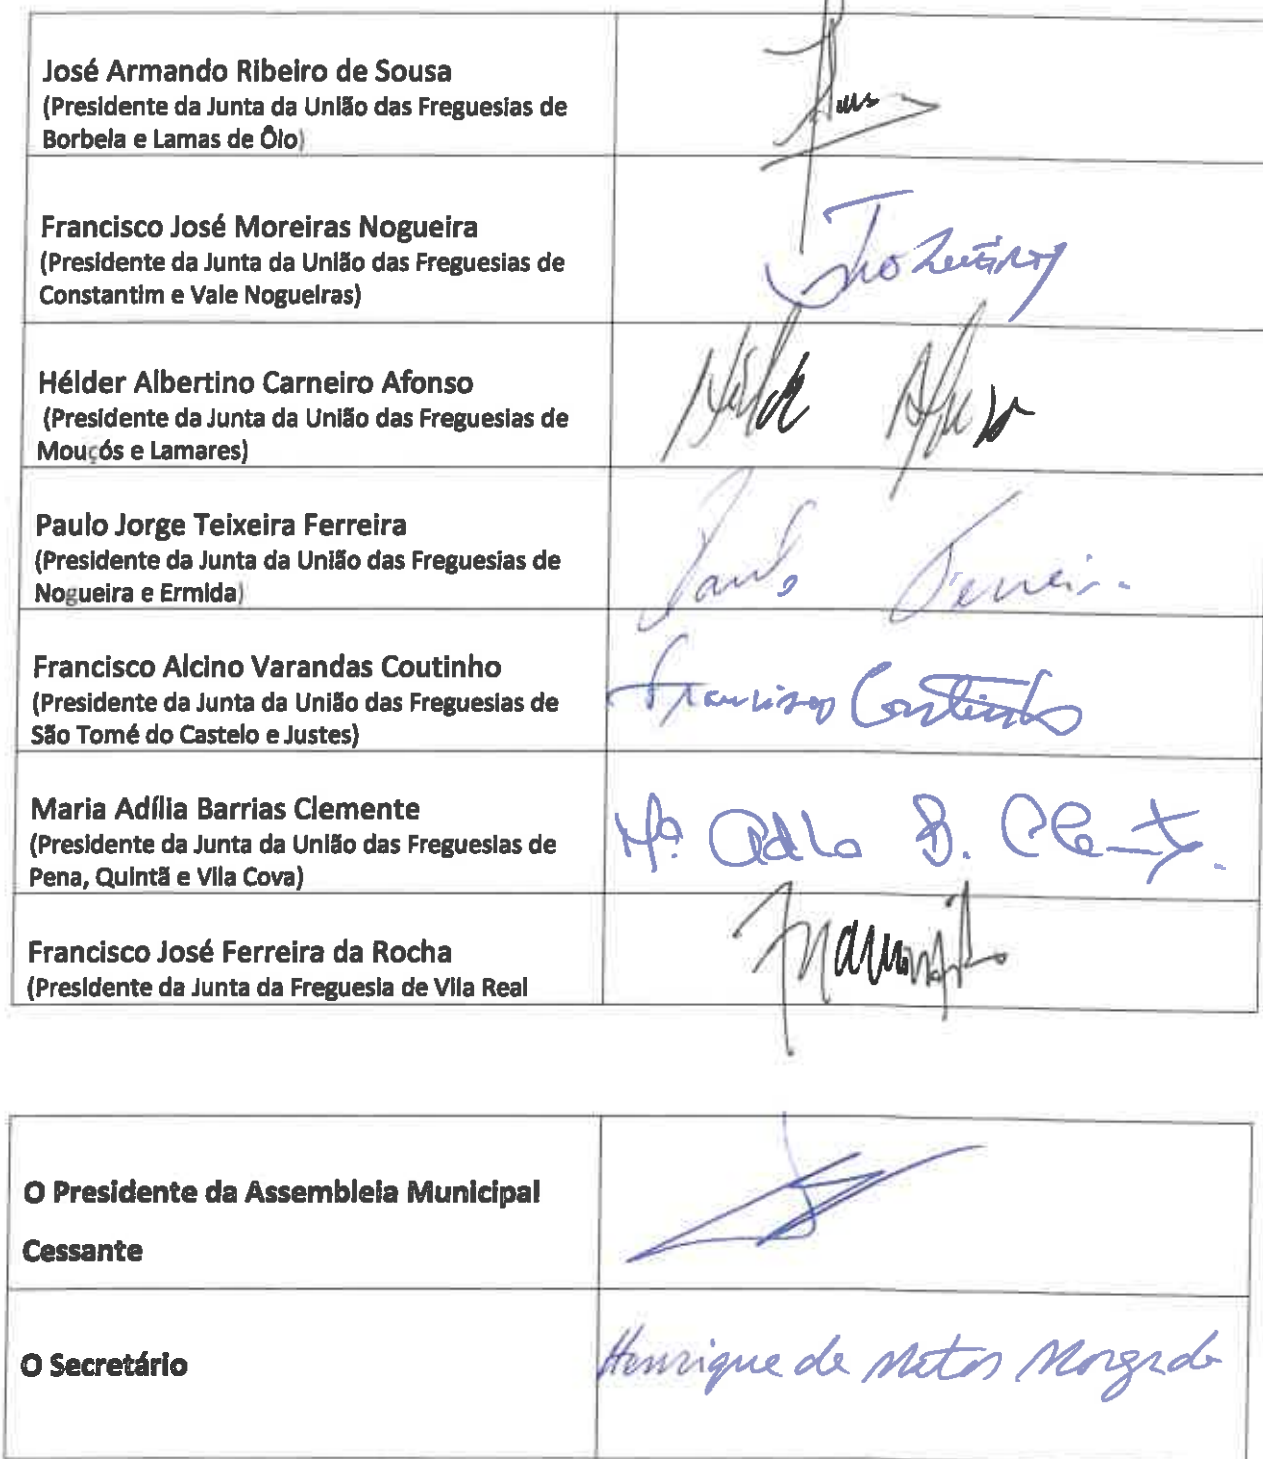 José Armando Ribeiro de Sousa
(Presidente da Junta da União das Freguesias de
Borbela e Lamas de Ôlo)
Francisco José Moreiras Nogueira
(Presidente da Junta da União das Freguesias de
Constantim e Vale Nogueiras)
Hélder Albertino Carneiro Afonso
(Presidente da Junta da União das Freguesias de
Mouçós e Lamares)
Hélder Afonso
Paulo Jorge Teixeira Ferreira
(Presidente da Junta da União das Freguesias de
Nogueira e Ermida)
Paulo Ferreira
Francisco Alcino Varandas Coutinho
(Presidente da Junta da União das Freguesias de
São Tomé do Castelo e Justes)
Francisco Coutinho
Maria Adília Barrias Clemente
(Presidente da Junta da União das Freguesias de
Pena, Quintã e Vila Cova)
Mª. B.
Francisco José Ferreira da Rocha
(Presidente da Junta da Freguesia de Vila Real
O Presidente da Assembleia Municipal
Cessante
O Secretário
Henrique de Matos Morgado